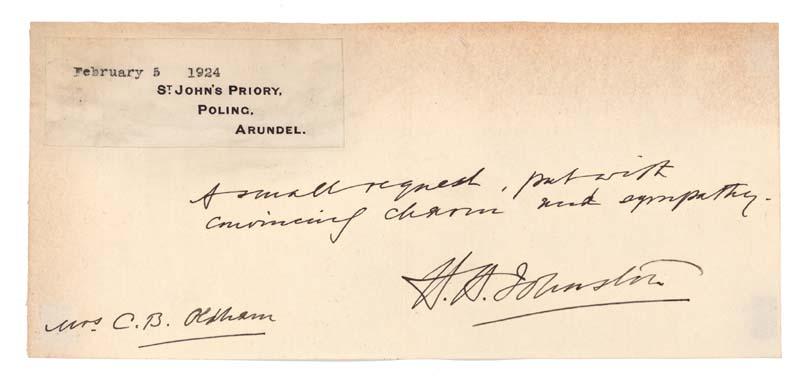 February 5 1924
ST JOHN'S PRIORY,
POLING,
ARUNDEL.
A small request, put with
convincing charm and sympathy.
H. H. Johnston
Mrs C. B. Oldham